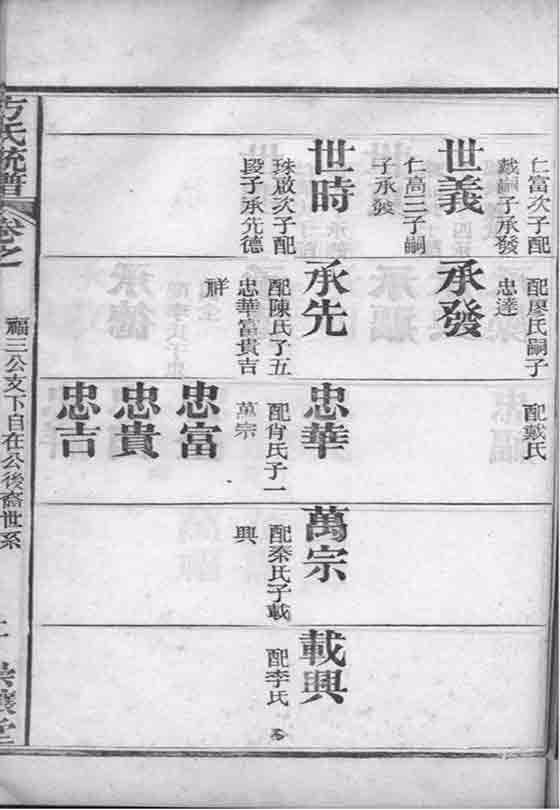 仁富次子配
戴嗣子承發
世義
仁高三子嗣
子承發
世時
珠啟次子配
段子承先德
配廖氏嗣子
忠達
承發
承先
配陳氏子五
忠華富貴吉
祥
配戴氏
忠華
配肖氏子一
萬宗
忠富
忠貴
忠吉
萬宗
配秦氏子載
興
載興
配李氏
方氏統譜
卷之
福三公支下自在公後裔世系